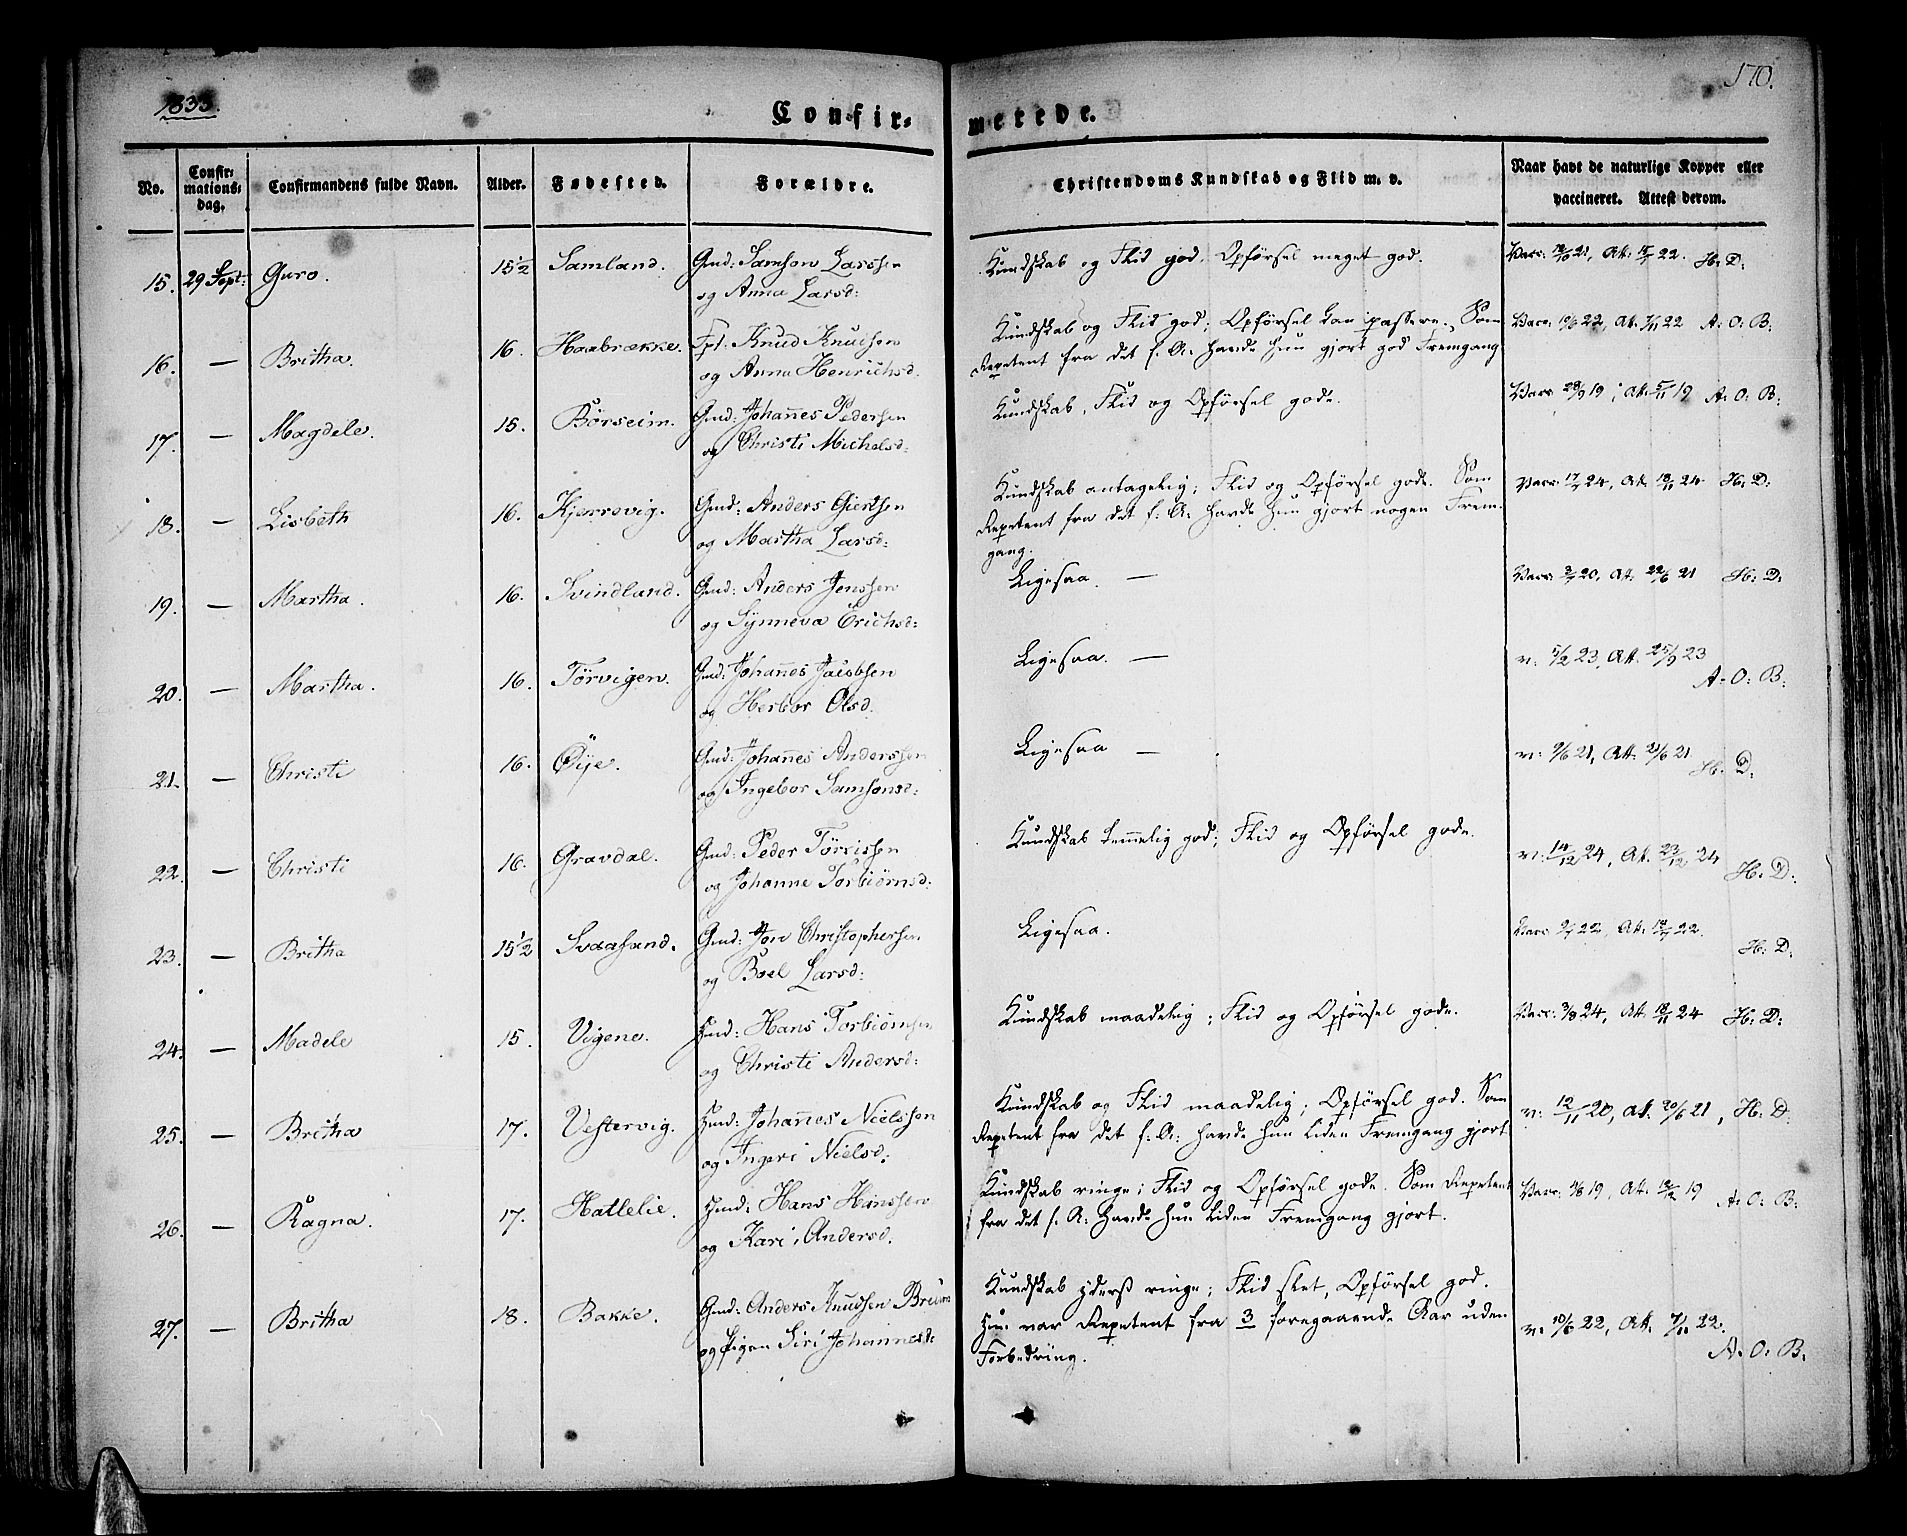 1833.
170.
Confir=
merede.
No.
Confir=
mations=
dag.
Confirmandens fulde Navn.
Alder.
Fødested.
Forældre.
Christendoms Kundskab og Flid m. v.
Naar havt de naturlige Kopper eller
vaccineret. Attest derom.
15. 29 Sept: Guro. 15½ Samland. Gmd: Samson Larssen
og Anna Larsd:
Kundskab og Flid god. Opførsel meget god.
16. — Britha. 16. Haabrække. Fpl: Knud Knudsen
og Anna Henrichsd.
Kundskab og Flid god; Opførsel kan passere. Som
Repetent fra det f. A: havde hun gjort god Fremgang
A: O: B:
17. — Magdele. 15. Børseim. Gmd: Johannes Pedersen
og Christi Michelsd:
Kundskab, Flid og Opførsel gode.
A: O: B:
18. — Lisbeth 16. Kjerrevig. Gmd: Anders Giertsen
og Martha Larsd:
Kundskab antagelig; Flid og Opførsel gode. Som
Repetent fra det f: A: havde hun gjort nogen Frem-
gang.
H: D:
19. — Martha. 16. Svindland. Gmd: Anders Jonssen
og Synneva Erichsd:
Ligesaa. —
H: D:
20. — Martha. 16. Tørvigen. Gmd: Johannes Jacobsen
og Herbor Olsd.
Ligesaa. —
v: 5/2 23, Att. 25/9 23
A: O: B:
21. — Christi 16. Øye. Gmd: Johannes Anderssen
og Ingebor Samsonsd:
Ligesaa —
H: D:
22. — Christi 16. Gravdal. Gmd: Peder Tørrissen
og Johanne Torbiørnsd:
Kundskab temmelig god; Flid og Opførsel gode.
v: 14/12 24, At. 23/12 24
H. D:
23. — Britha 15½ Svaasand. Gmd: Jon Christophersen
og Boel Larsd:
Ligesaa.
H: D:
24. — Madele 15. Vigene. Hmd: Hans Torbiørnsen
og Christi Andersd:
Kundskab maadelig; Flid og Opførsel gode.
H: D:
25. — Britha 17. Vestervig. Hmd: Johannes Nielssen
og Ingeri Nielsd:
Kundskab og Flid maadelig; Opførsel god. Som
Repetent fra det f: A: havde hun liden Fremgang gjort
v: 12/11 20, At: 20/6 21, H: D:
26. — Ragna. 17. Hatlelie. Hmd: Hans Hanssen
og Kari Andersd.
Kundskab ringe; Flid og Opførsel gode. Som Repetent
fra det f. A: havde hun liden Fremgang gjort.
A: O: B:
27. — Britha 18. Bakke. Gmd: Anders Knudsen
og Pigen Siri Johannesd:
Kundskab yderst ringe; Flid slet, Opførsel god.
Hun var Repetent fra 3 foregaaende Aar uden
Forbedring.
v: 10/6 22, At. 7/11 22.
A: O: B: